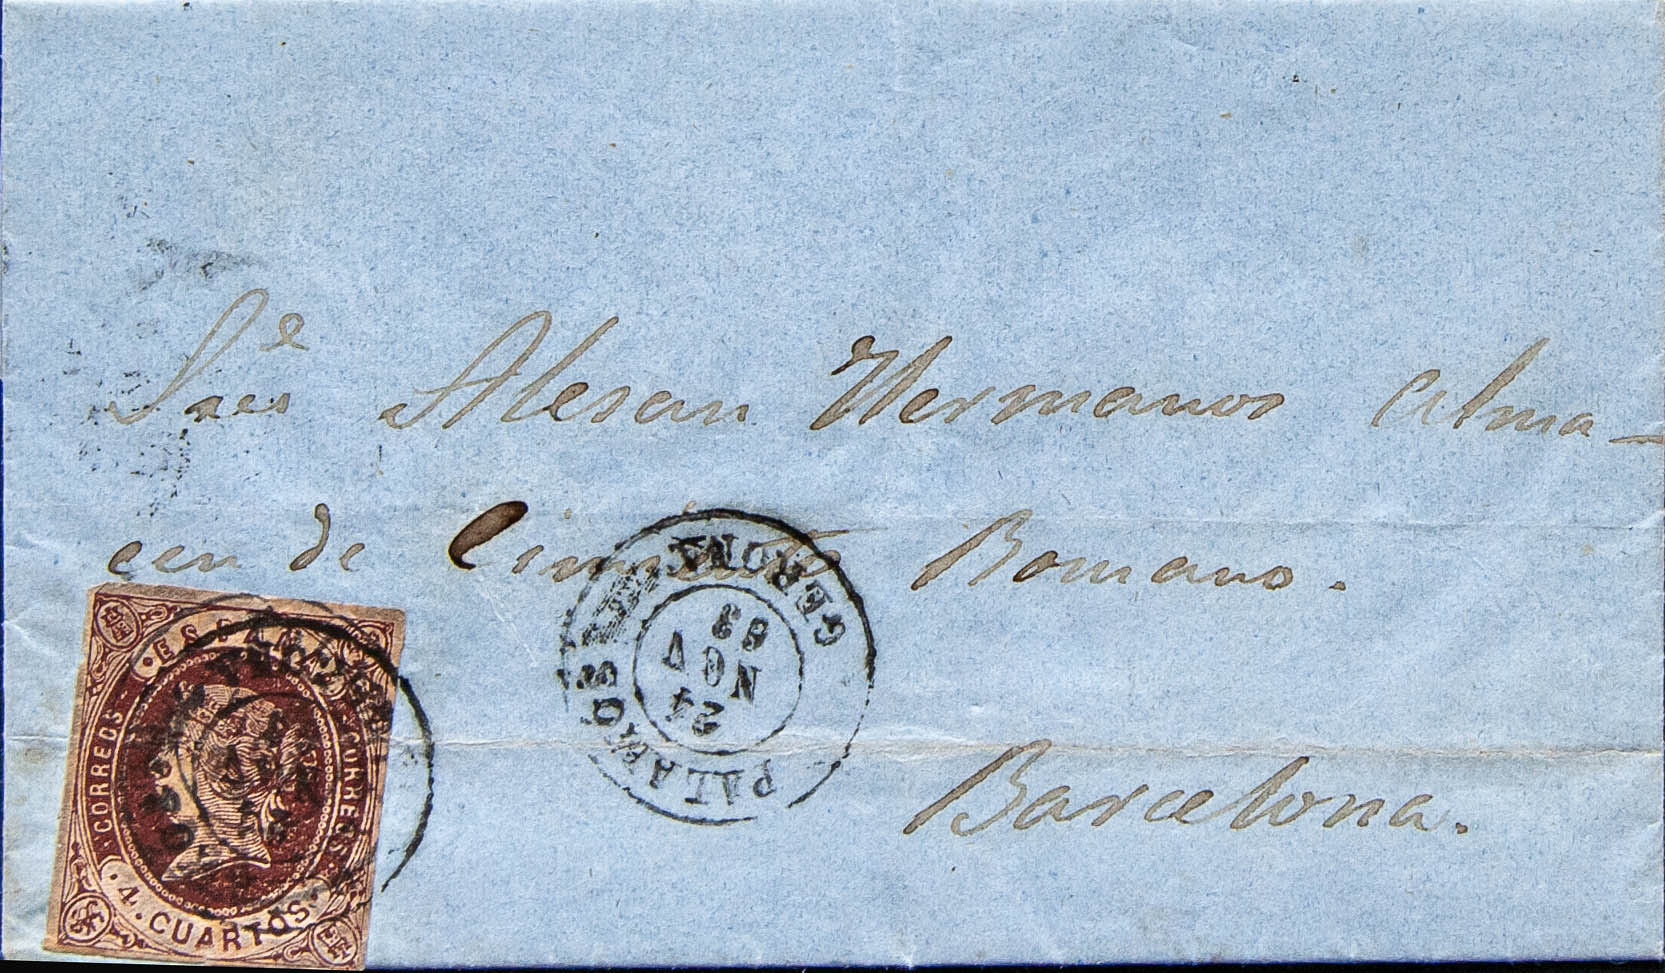 Sres Alesan Hermanos Alma-
cen de Cimiento Romano.
Barcelona.
PALAMOS
GERONA
24
NOV
63
ESPAÑA
CORREOS
CORREOS
4 CUARTOS